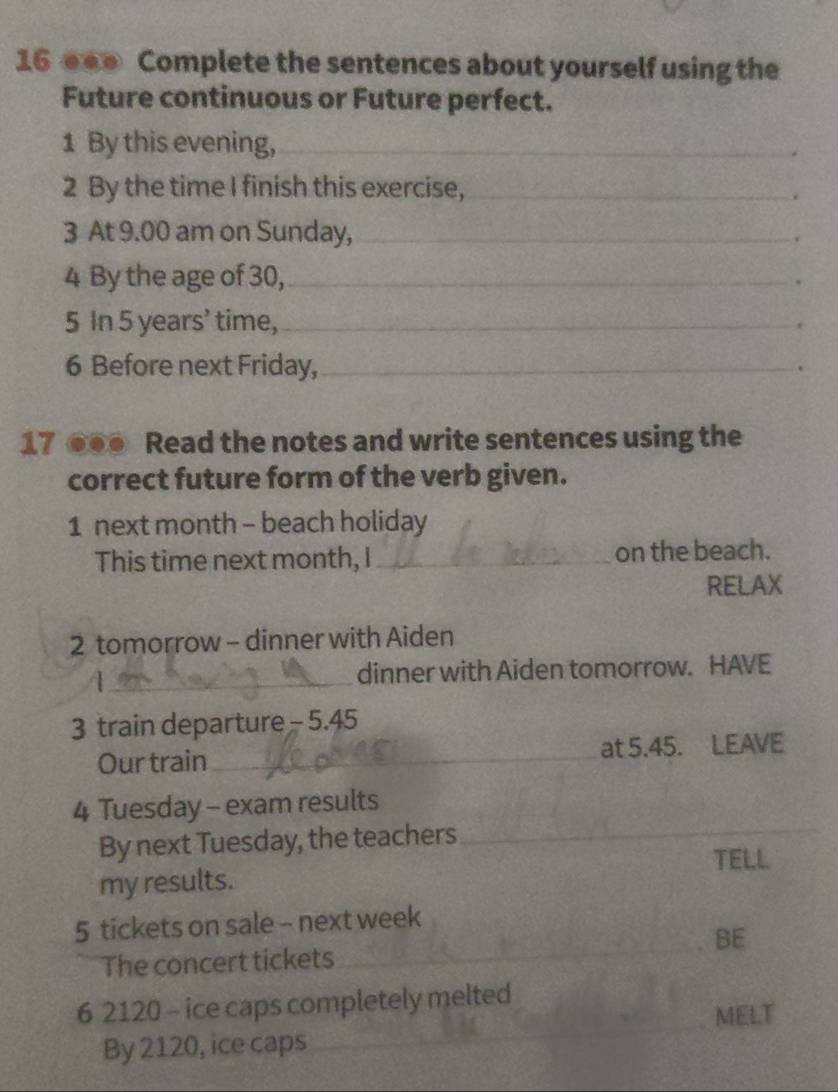 16 ●●● Complete the sentences about yourself using the
Future continuous or Future perfect.
1 By this evening, .
2 By the time I finish this exercise, .
3 At 9.00 am on Sunday, .
4 By the age of 30, .
5 In 5 years' time, .
6 Before next Friday, .
17 ●●● Read the notes and write sentences using the
correct future form of the verb given.
1 next month – beach holiday
This time next month, I 'll be on the beach.
RELAX
2 tomorrow – dinner with Aiden
I having dinner with Aiden tomorrow. HAVE
3 train departure – 5.45
Our train leaves at 5.45. LEAVE
4 Tuesday – exam results
By next Tuesday, the teachers
TELL
my results.
5 tickets on sale – next week
The concert tickets . BE
6 2120 – ice caps completely melted
By 2120, ice caps . MELT